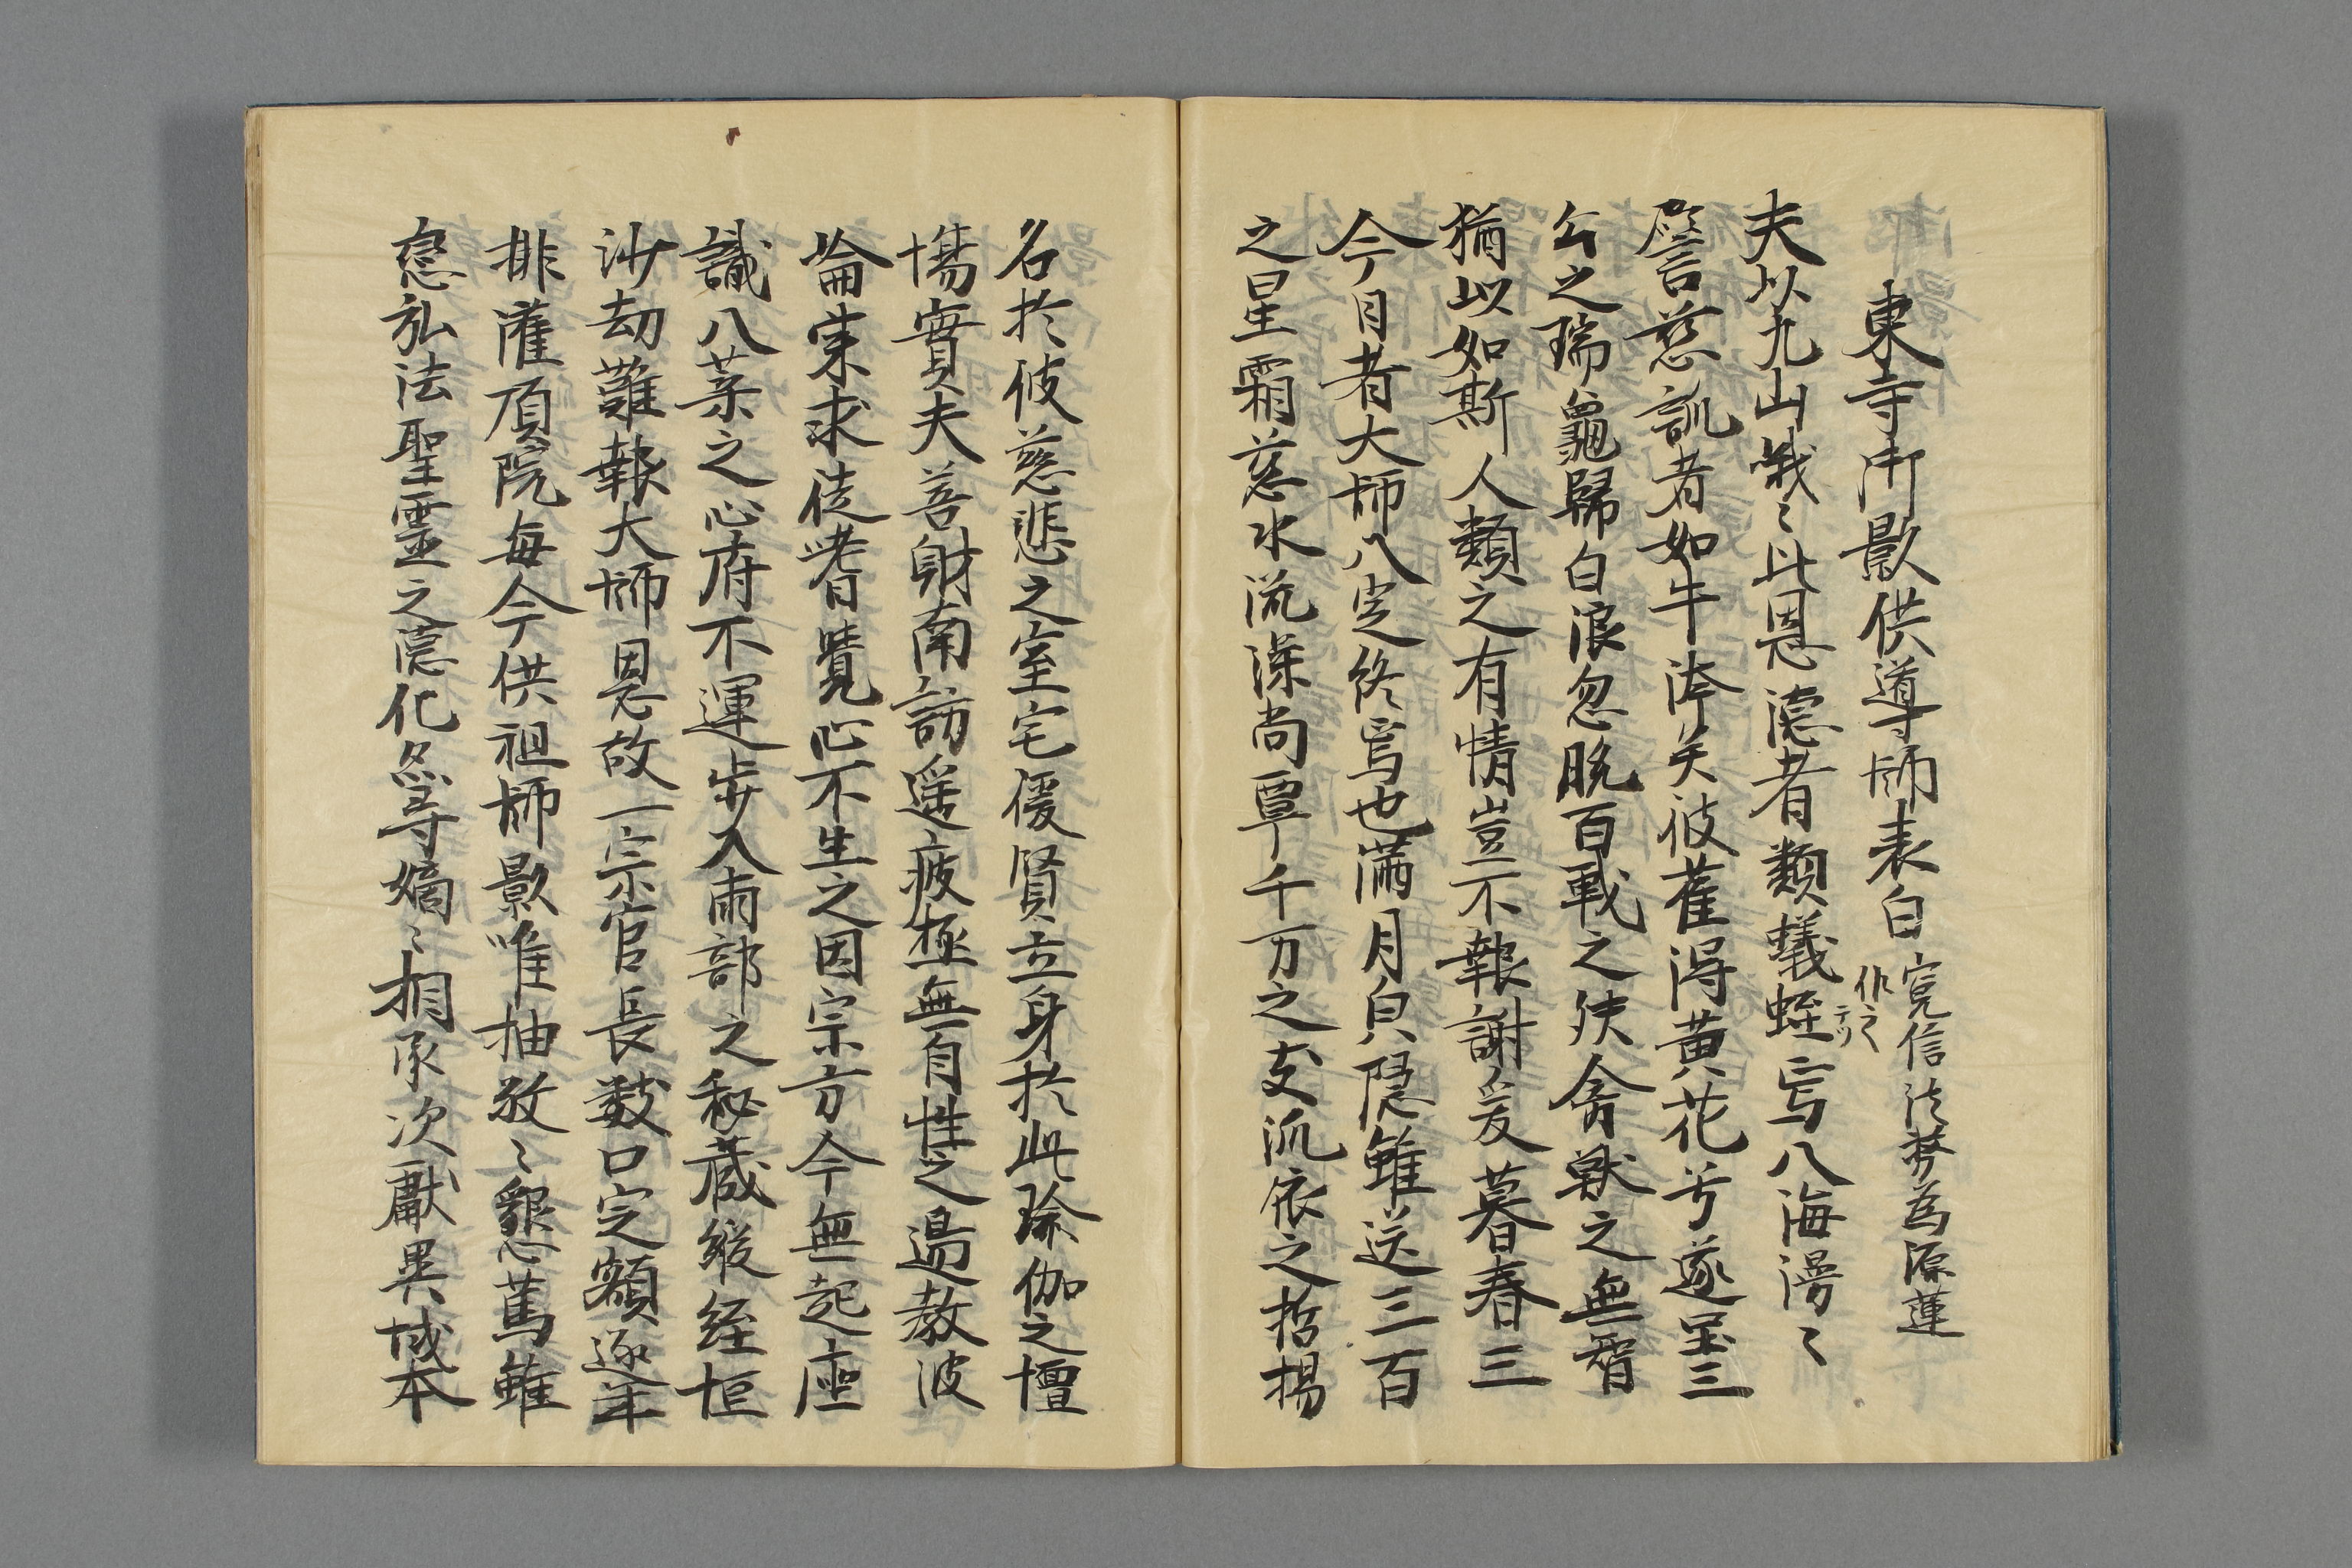 東寺御影供導師表白 寛信法務為源蓮
作之云々
夫以九山峨々比恩德者類蟻蛭焉八海漫々
譬慈訓者如牛涔矣彼雀得黄花兮遂呈三
公之瑞龜歸白浪忽脱百戦之侠禽獣之無智
猶以如斯人類之有情豈不報謝爰暮春三
今月者大師入定終焉也満月自隠雖送三百
之星霜慈水流深尚覃千万之支流依之哲揚
名於彼慈悲之室宅優賢立身於此瑜伽之壇
場實夫善財南訪遥疲極無自性之過教波
崙東求徒耆覺心不生之因宗方今無起座
識八葉之心府不運歩入両部之秘蔵縦経恒
沙劫難報大師恩故一宗官長数口定額逐年
排灌頂院毎今供祖師影唯抽孜々懇篤雖
忩弘法聖霊之德化忽等嫡々相承次獻異域本